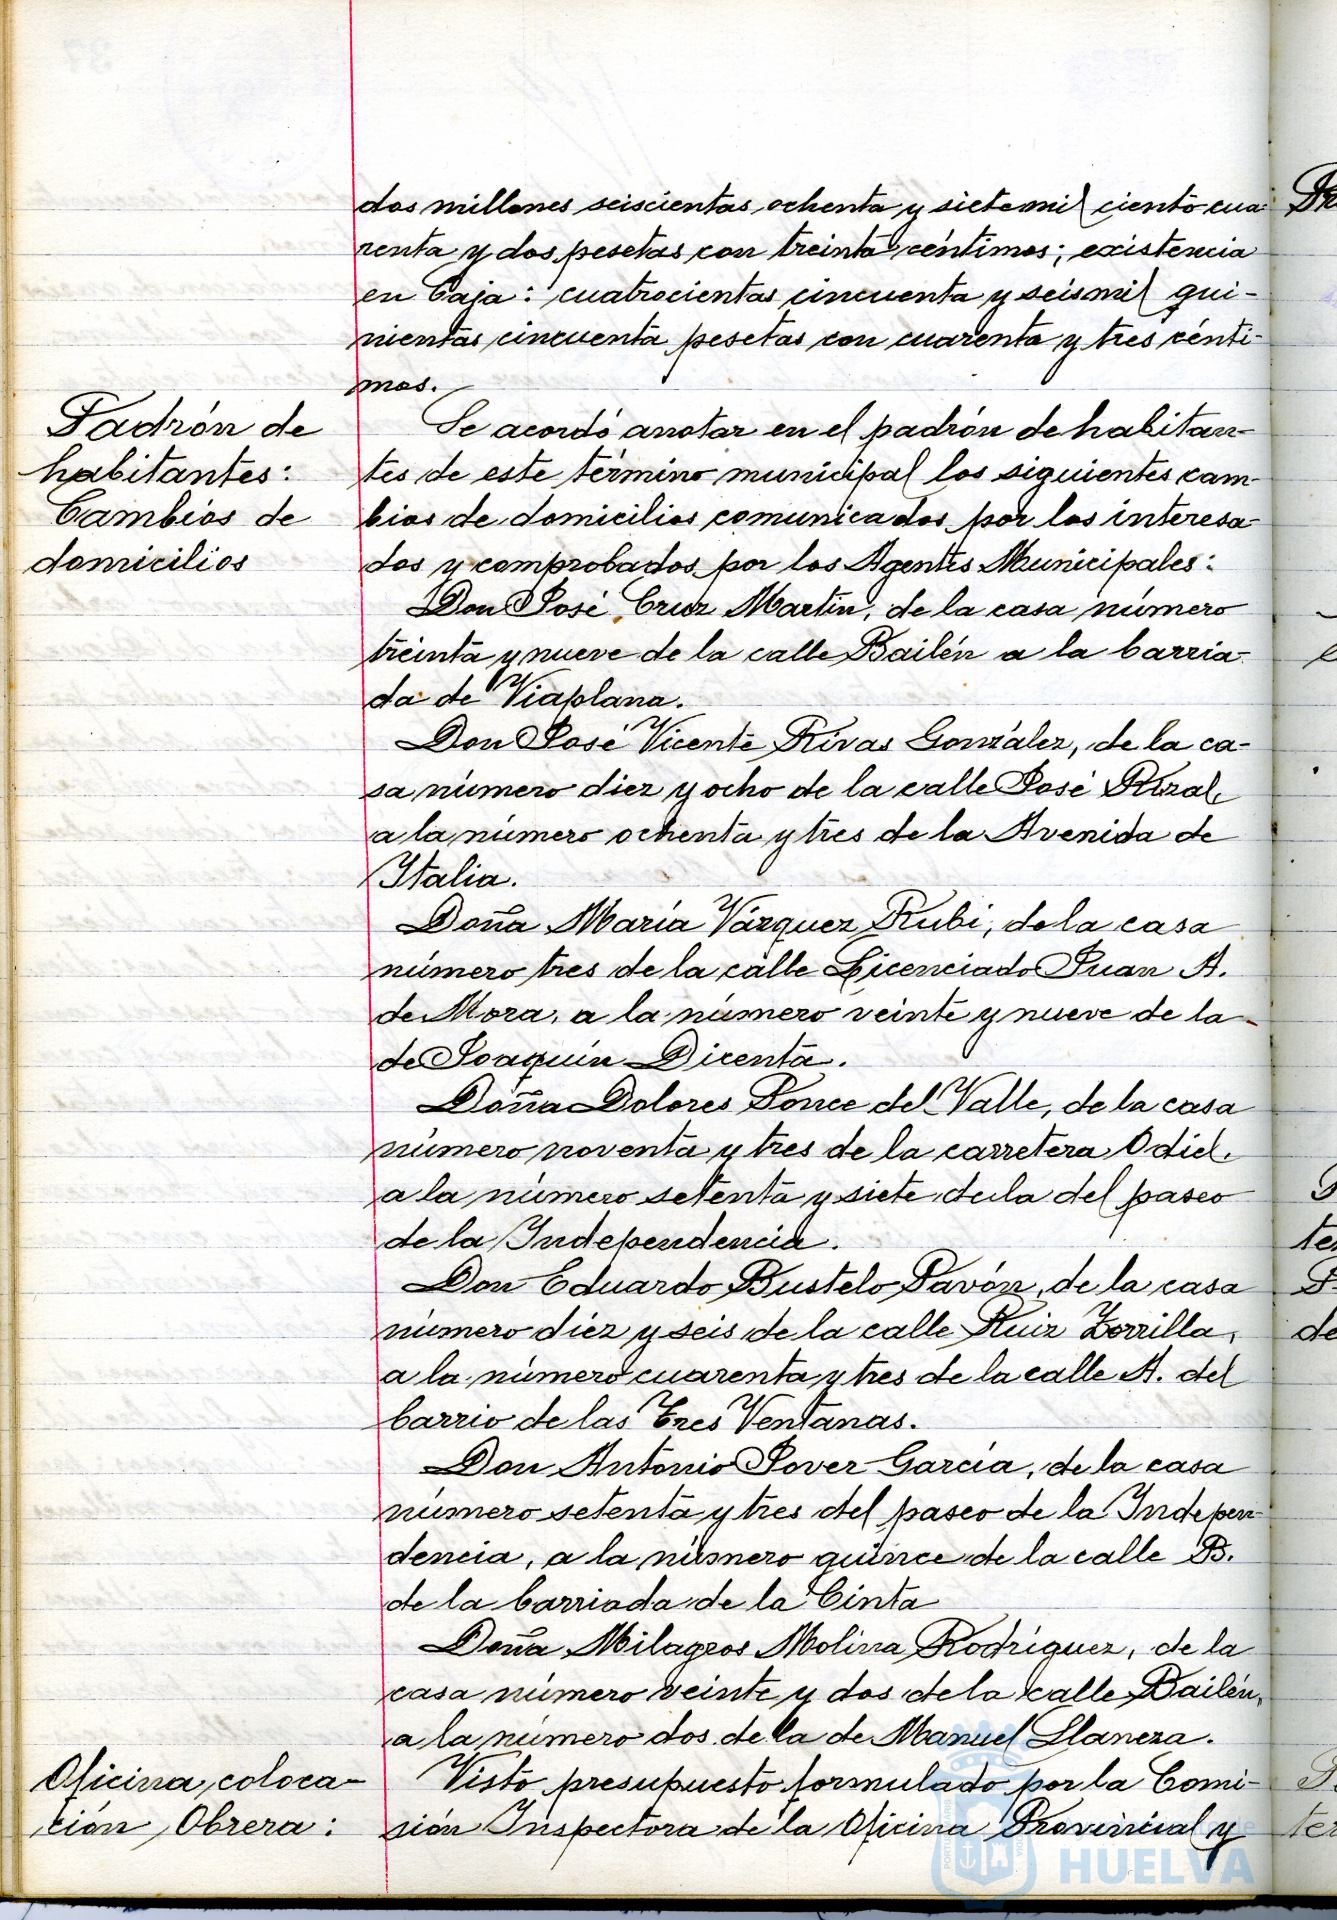 dos millones seiscientas ochenta y sietemil ciento cua-
renta y dos pesetas con treinta céntimos; existencia
en Caja: cuatrocientas cincuenta y seismil qui-
nientas cincuenta pesetas con cuarenta y tres cénti-
mos.
Padrón de
habitantes:
Cambios de
domicilios
Se acordó anotar en el padrón de habitan-
tes de este término municipal los siguientes cam-
bios de domicilios comunicados por los interesa-
dos y comprobados por los Agentes Municipales:
Don José Cruz Martín, de la casa número
treinta y nueve de la calle Bailén a la barria-
da de Viaplana.
Don José Vicente Rivas González, de la ca-
sa número diez y ocho de la calle José Rizal,
a la número ochenta y tres de la Avenida de
Italia.
Doña María Vázquez Rubi, de la casa
número tres de la calle Licenciado Juan A.
de Mora, a la número veinte y nueve de la
de Joaquín Dicenta.
Doña Dolores Ponce del Valle, de la casa
número noventa y tres de la carretera Odiel,
a la número setenta y siete de la del paseo
de la Independencia.
Don Eduardo Bustelo Pavón, de la casa
número diez y seis de la calle Ruiz Zorrilla,
a la número cuarenta y tres de la calle A. del
barrio de las Tres Ventanas.
Don Antonio Jover García, de la casa
número setenta y tres del paseo de la Indepen-
dencia, a la número quince de la calle B.
de la barriada de la Cinta
Doña Milagros Molina Rodríguez, de la
casa número veinte y dos de la calle Bailén,
a la número dos de la de Manuel Llaneza.
Oficina coloca-
ción Obrera:
Visto presupuesto formulado por la Comi-
sión Inspectora de la Oficina Provincial y
HUELVA